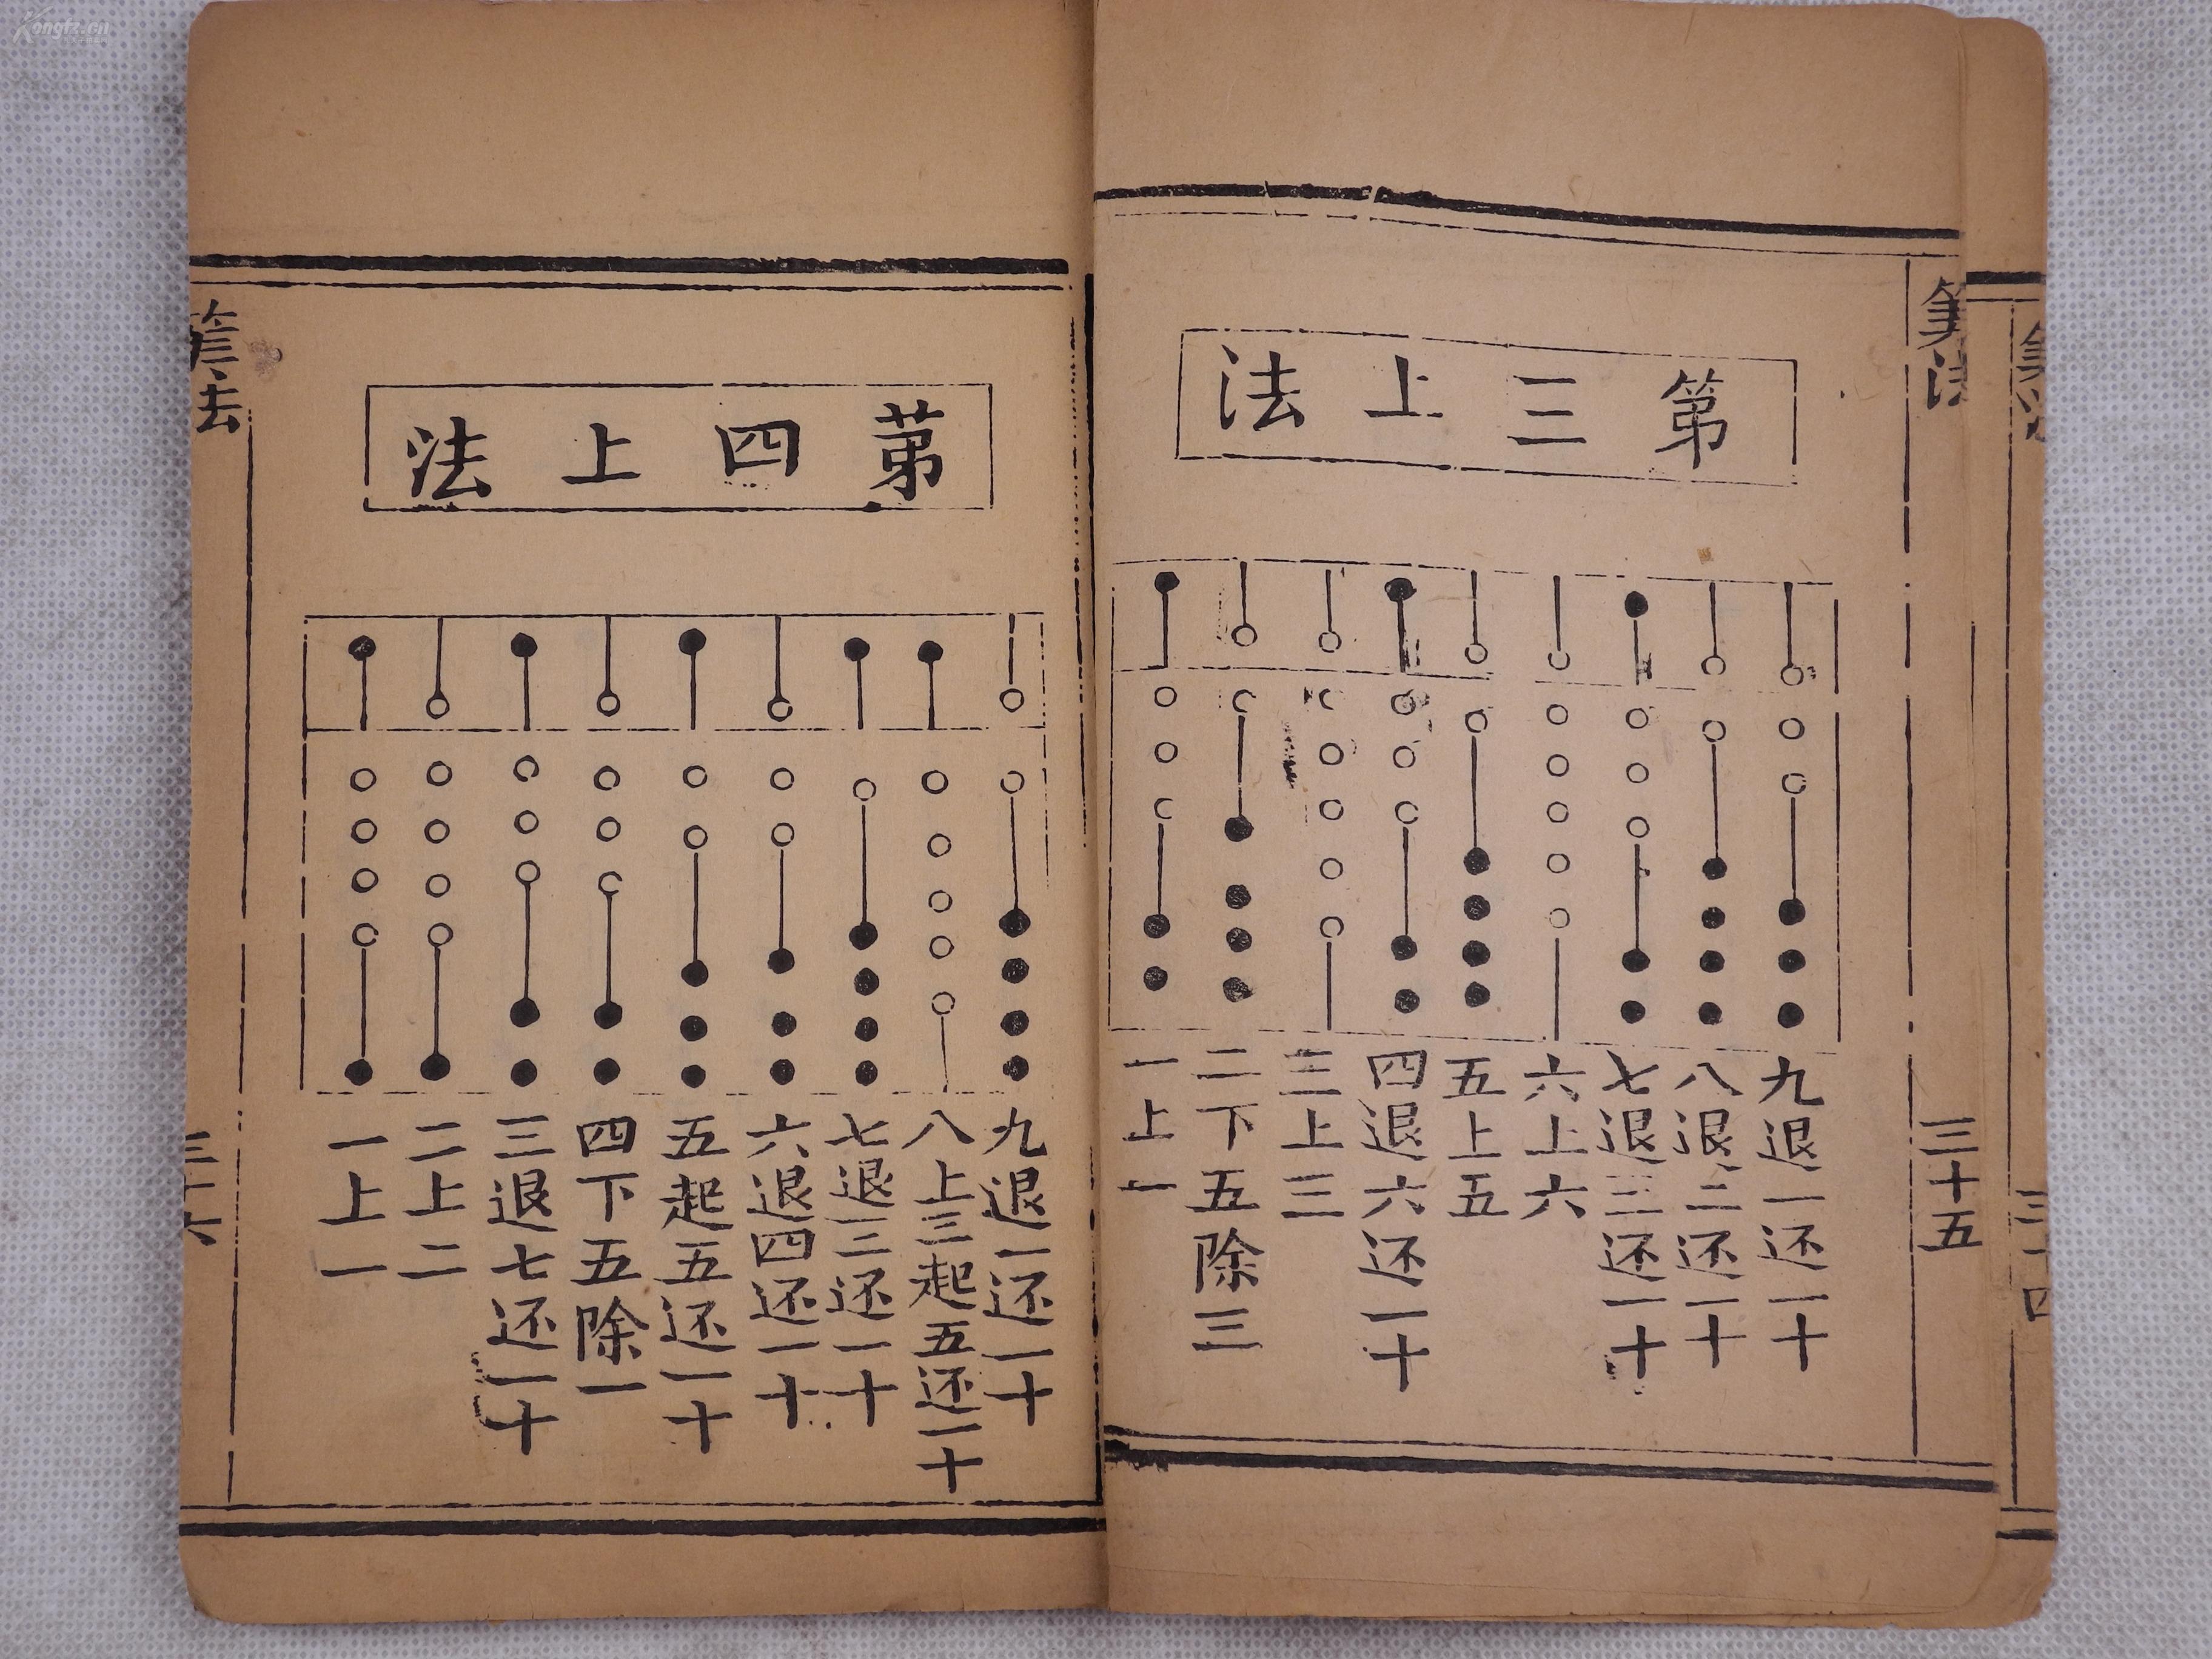 Kongfz.cn
筭法
三十五
第三上法
九退一还一十
八退二还一十
七退三还一十
六上六
五上五
四退六还一十
三上三
二下五除三
一上一
第四上法
九退一还一十
八上三起五还一十
七退三还一十
六退四还一十
五起五还一十
四下五除一
三退七还一十
二上二
一上一
法